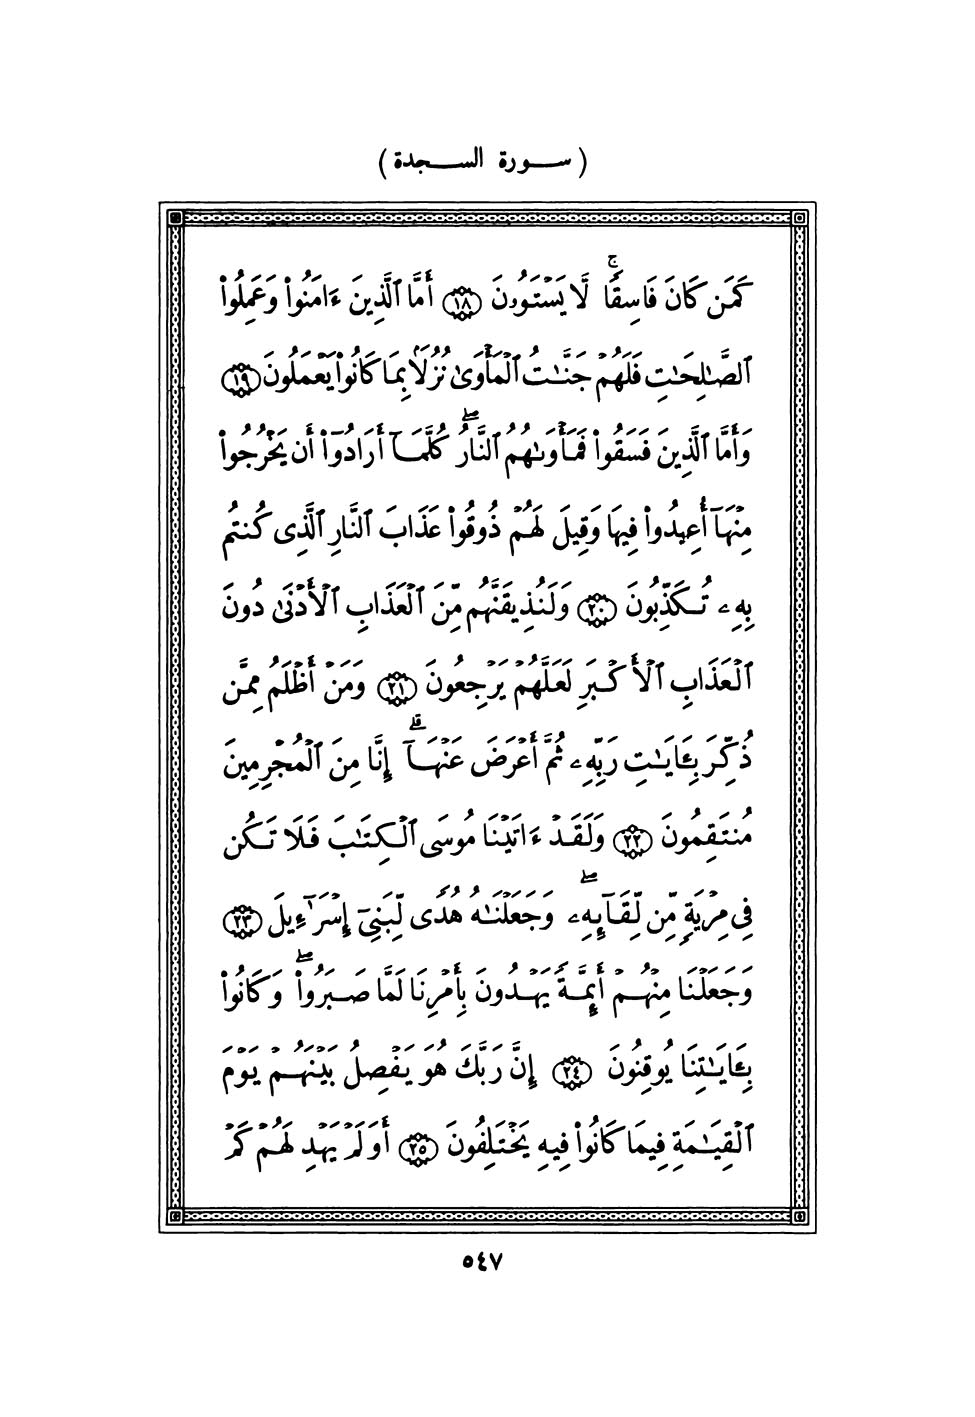 ( سورة السجدة )
كَمَن كَانَ فَاسِقًا ۚ لَّا يَسْتَوُۥنَ ﴿١٨﴾ أَمَّا ٱلَّذِينَ ءَامَنُوا۟ وَعَمِلُوا۟
ٱلصَّـٰلِحَـٰتِ فَلَهُمْ جَنَّـٰتُ ٱلْمَأْوَىٰ نُزُلًۢا بِمَا كَانُوا۟ يَعْمَلُونَ ﴿١٩﴾
وَأَمَّا ٱلَّذِينَ فَسَقُوا۟ فَمَأْوَىٰهُمُ ٱلنَّارُ ۖ كُلَّمَآ أَرَادُوٓا۟ أَن يَخْرُجُوا۟
مِنْهَآ أُعِيدُوا۟ فِيهَا وَقِيلَ لَهُمْ ذُوقُوا۟ عَذَابَ ٱلنَّارِ ٱلَّذِى كُنتُم
بِهِۦ تُكَذِّبُونَ ﴿٢٠﴾ وَلَنُذِيقَنَّهُم مِّنَ ٱلْعَذَابِ ٱلْأَدْنَىٰ دُونَ
ٱلْعَذَابِ ٱلْأَكْبَرِ لَعَلَّهُمْ يَرْجِعُونَ ﴿٢١﴾ وَمَنْ أَظْلَمُ مِمَّن
ذُكِّرَ بِـَٔايَـٰتِ رَبِّهِۦ ثُمَّ أَعْرَضَ عَنْهَآ ۚ إِنَّا مِنَ ٱلْمُجْرِمِينَ
مُنتَقِمُونَ ﴿٢٢﴾ وَلَقَدْ ءَاتَيْنَا مُوسَى ٱلْكِتَـٰبَ فَلَا تَكُن
فِى مِرْيَةٍ مِّن لِّقَآئِهِۦ ۖ وَجَعَلْنَـٰهُ هُدًى لِّبَنِىٓ إِسْرَٰٓءِيلَ ﴿٢٣﴾
وَجَعَلْنَا مِنْهُمْ أَئِمَّةً يَهْدُونَ بِأَمْرِنَا لَمَّا صَبَرُوا۟ ۖ وَكَانُوا۟
بِـَٔايَـٰتِنَا يُوقِنُونَ ﴿٢٤﴾ إِنَّ رَبَّكَ هُوَ يَفْصِلُ بَيْنَهُمْ يَوْمَ
ٱلْقِيَـٰمَةِ فِيمَا كَانُوا۟ فِيهِ يَخْتَلِفُونَ ﴿٢٥﴾ أَوَلَمْ يَهْدِ لَهُمْ كَمْ
٥٤٧